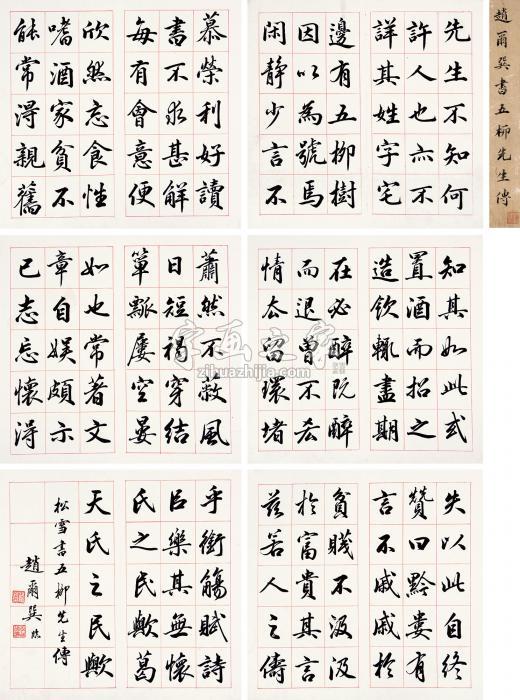 趙爾巽書五柳先生傳
先生不知何
許人也亦不
詳其姓字宅
邊有五柳樹
因以為號焉
閑靜少言不
慕榮利好讀
書不求甚解
每有會意便
欣然忘食性
嗜酒家貧不
能常得親舊
知其如此或
置酒而招之
造飲輒盡期
在必醉既醉
而退曾不吝
情去留環堵
蕭然不蔽風
日短褐穿結
簞瓢屢空晏
如也常著文
章自娛頗示
己志忘懷得
失以此自終
贊曰黔婁有
言不戚戚於
貧賤不汲汲
於富貴其言
茲若人之儔
乎銜觴賦詩
㠯樂其無懷
氏之民歟葛
天氏之民歟
松雪書五柳先生傳
趙爾巽臨
字画之家
zihuazhijia.com